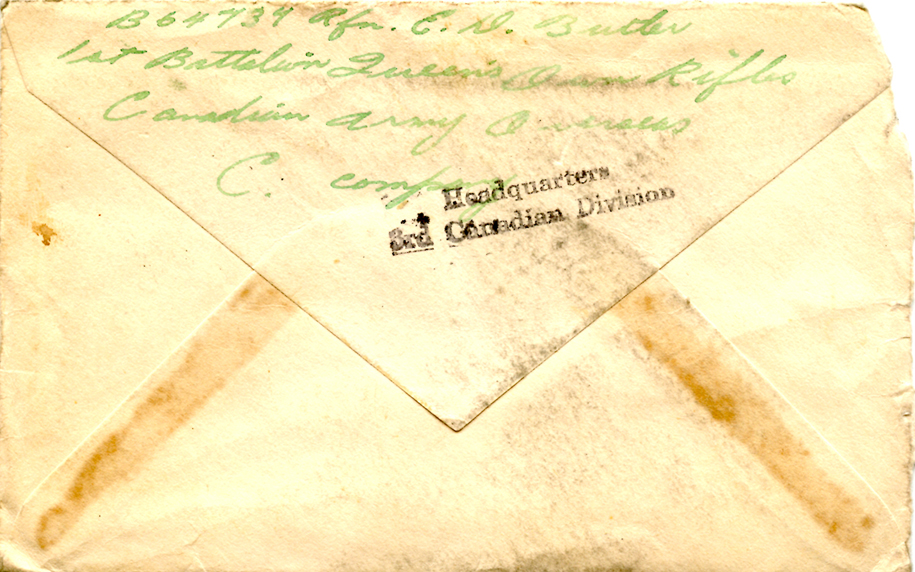 B64734 Rfn. C. D. Butler
1st Battalion Queen's Own Rifles
Canadian Army Overseas
C. company
Headquarters
3rd Canadian Division